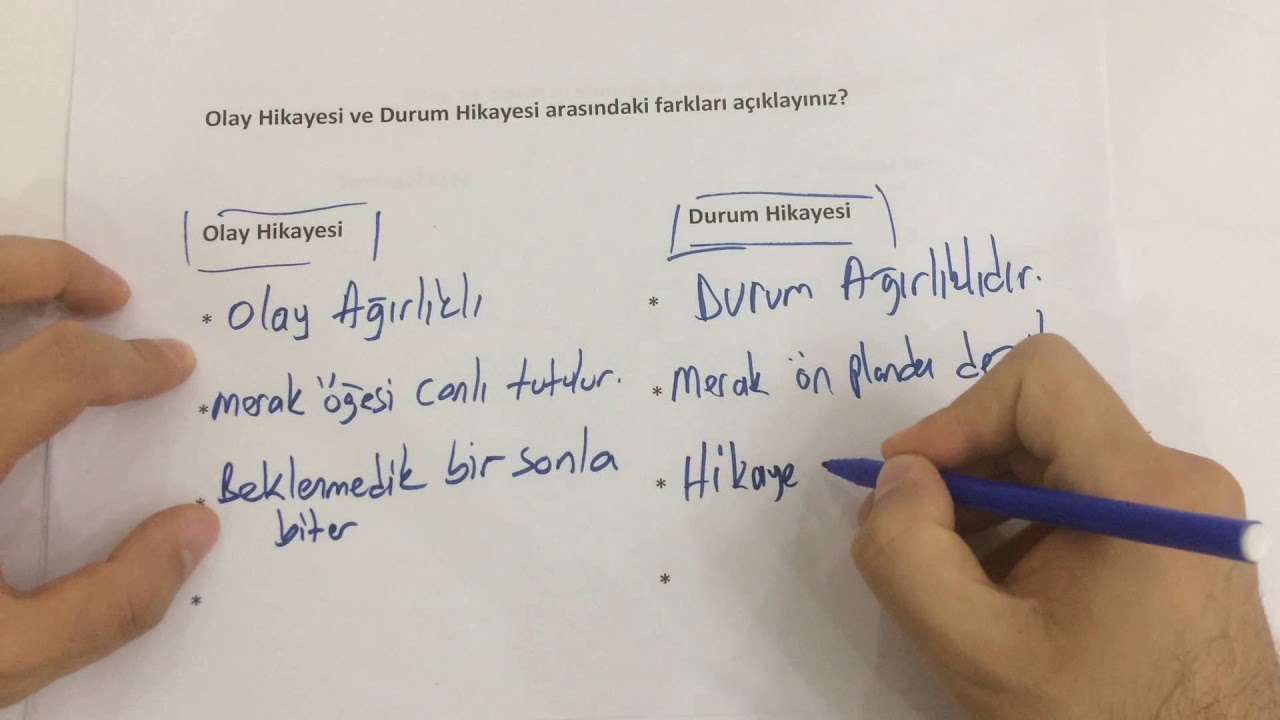 Olay Hikayesi ve Durum Hikayesi arasındaki farkları açıklayınız?
Olay Hikayesi
* Olay Ağırlıklı
* merak öğesi canlı tutulur.
* Beklenmedik bir sonla
biter
*
Durum Hikayesi
* Durum Ağırlıklıdır.
* Merak ön planda
* Hikaye
*